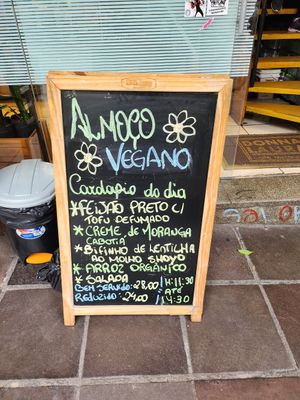 ALMOÇO
VEGANO
Cardápio do dia
*FEIJÃO PRETO C/
TOFU DEFUMADO
*CREME DE MORANGA
CABOTIA
*BIFINHO DE LENTILHA
AO MOLHO SHOYO
*ARROZ ORGÂNICO
*SALADA
BEM SERVIDO: 28,00
REDUZIDO: 24,00
H: 11:30
ATÉ
14:30
DONNA